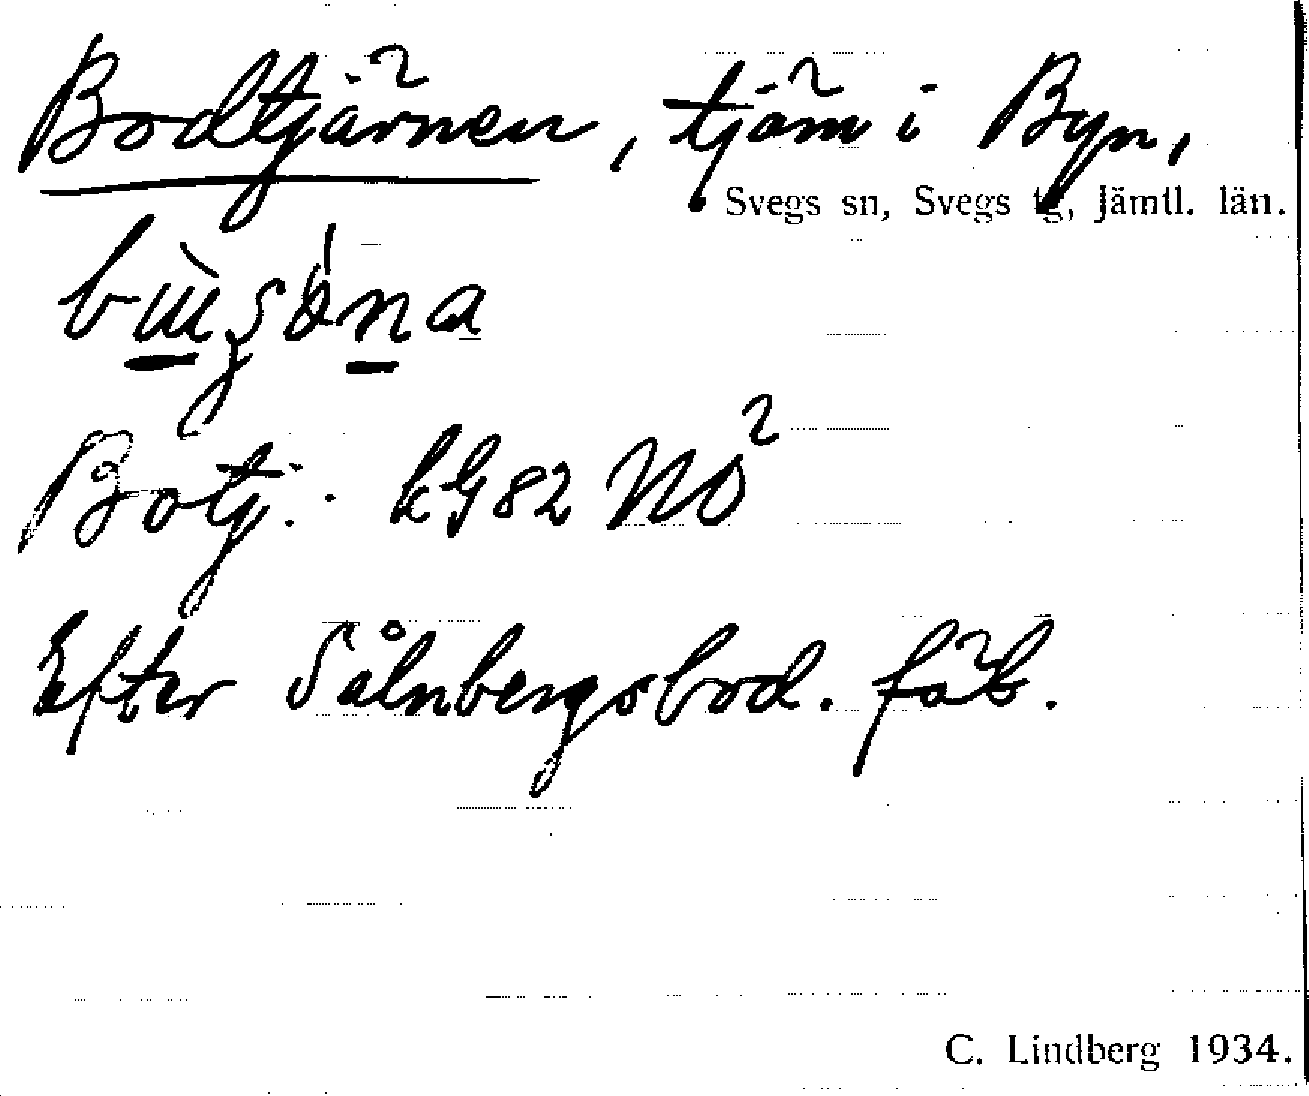 Bodtjärnen, tjärn i Byn,
Svegs sn, Svegs tg, Jämtl. län.
Botj: kG82 NO²
Efter Sålnbergsbod. fäb.
C. Lindberg 1934.